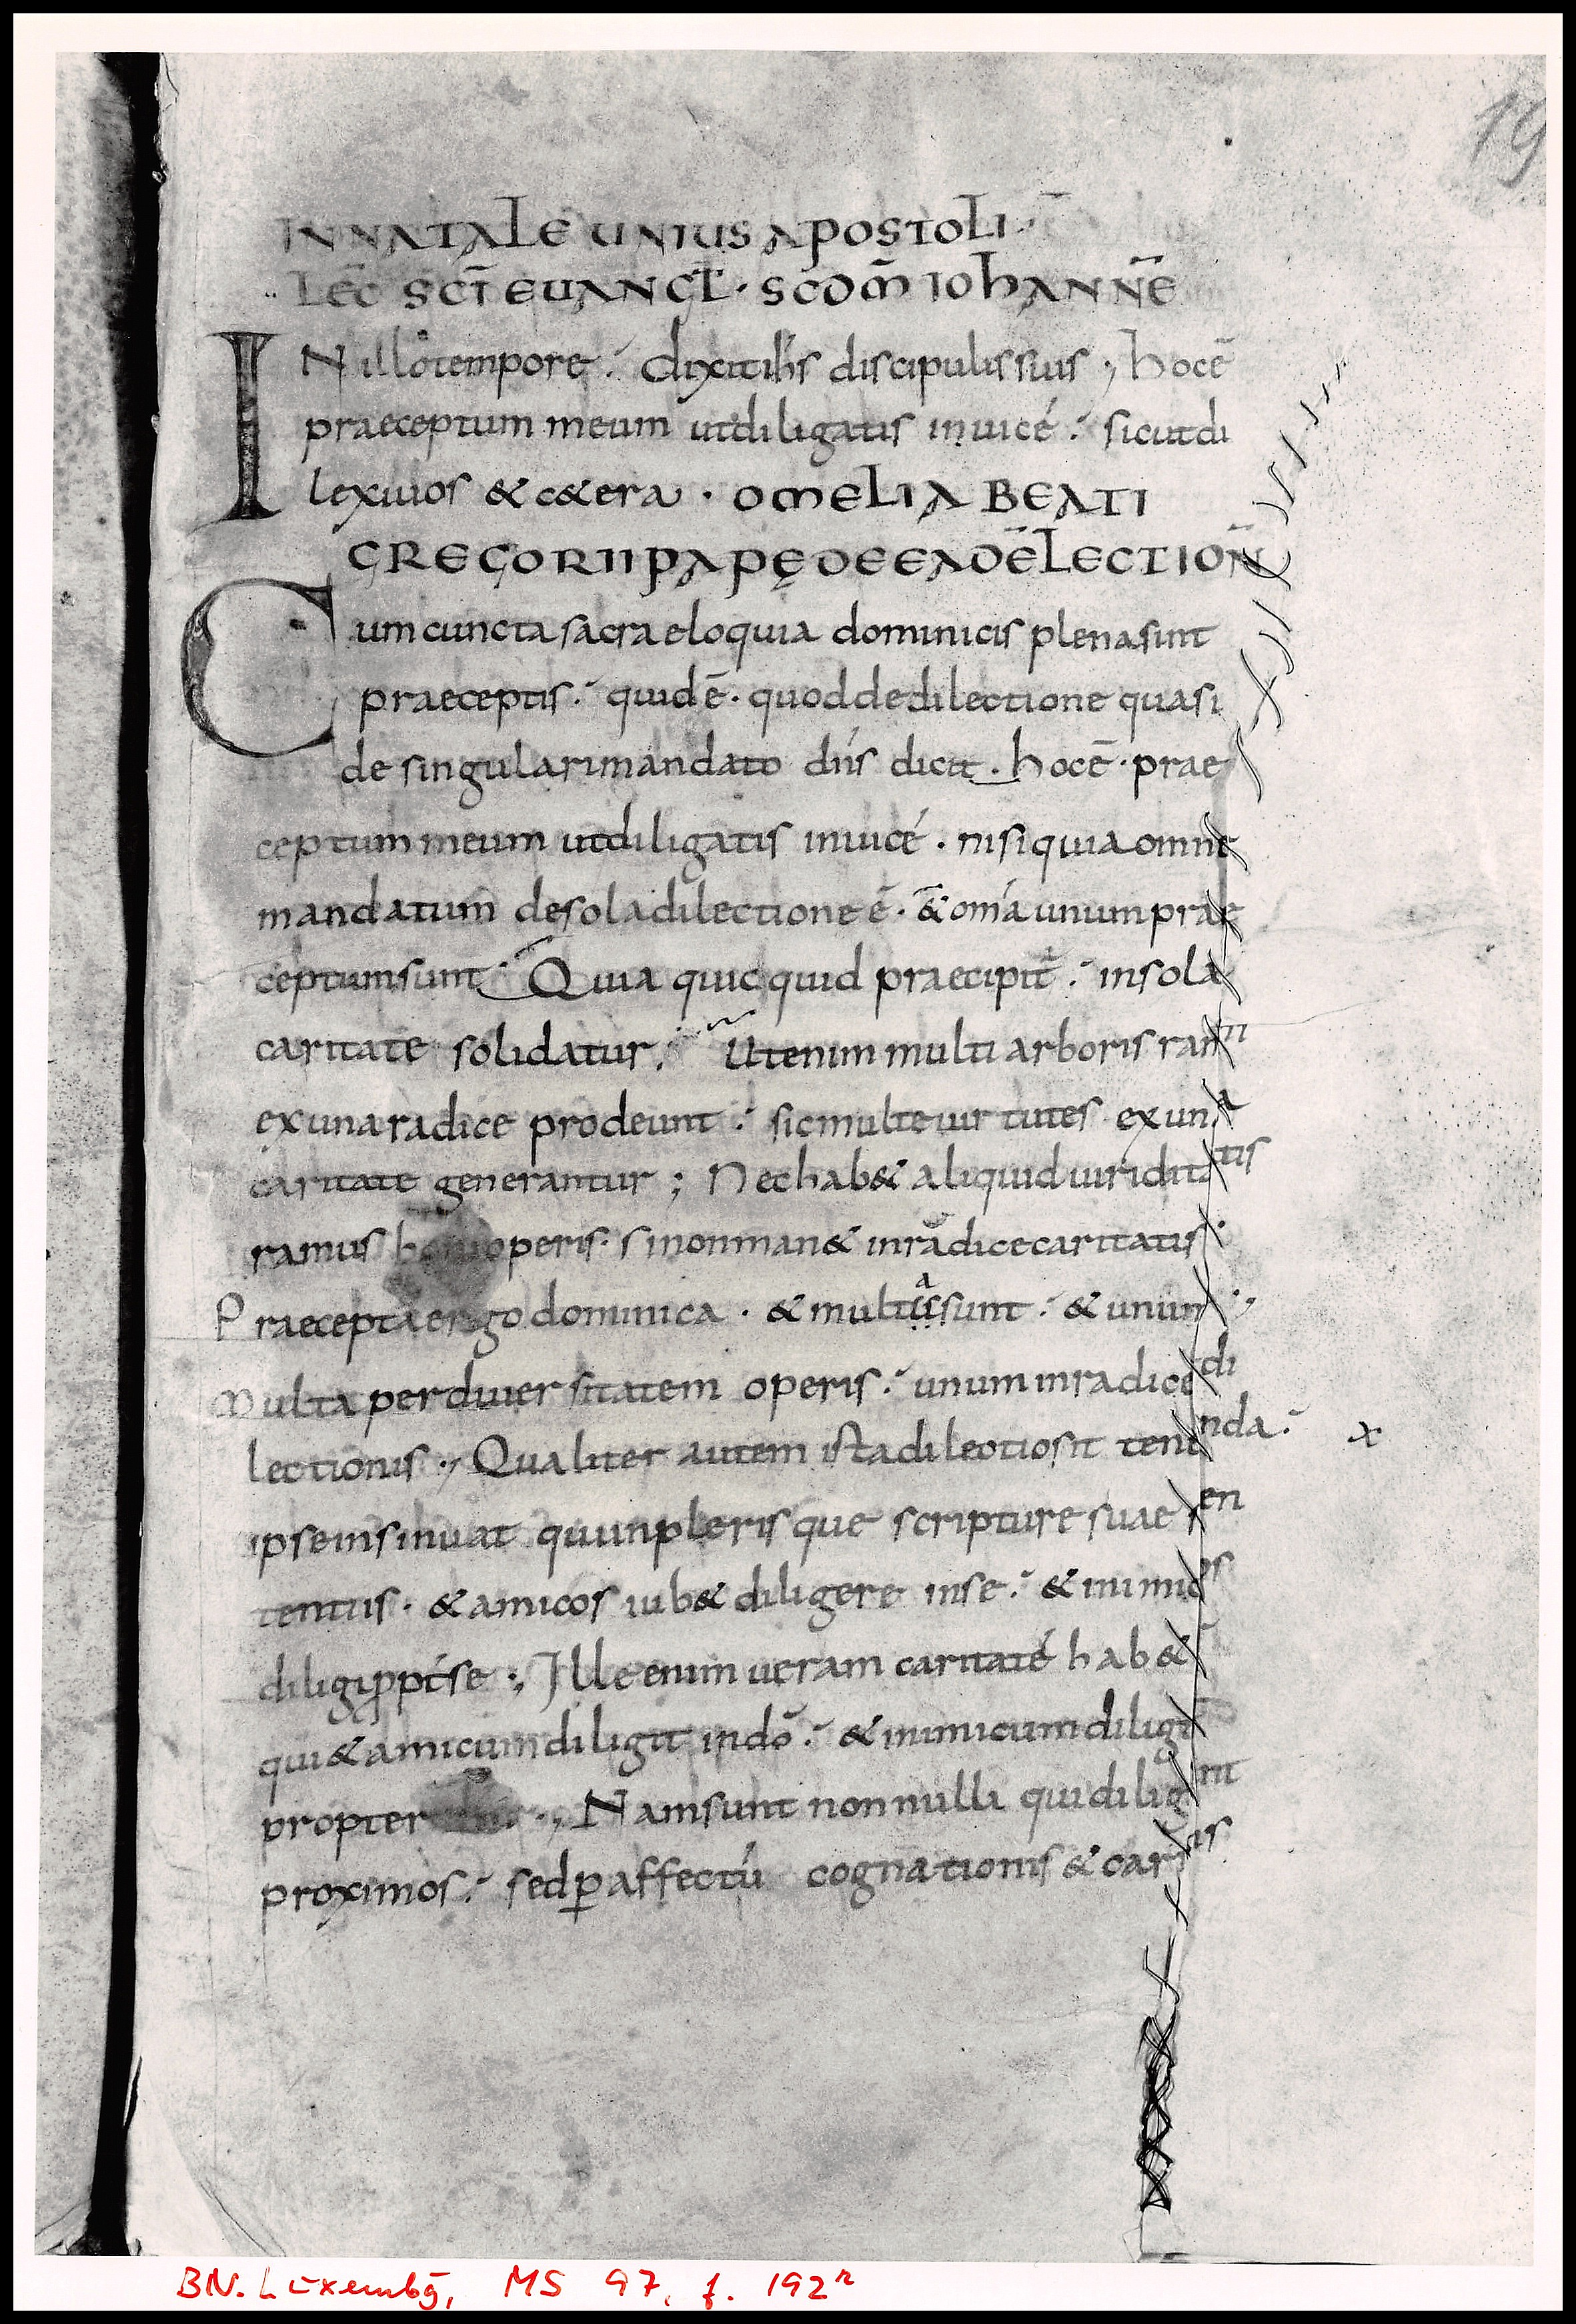 19
IN NATALE UNIUS APOSTOLI·
LEC̄ SC̄I EUANGL̄· SCDM̄ IOHANNĒ
IN illo tempore·́ dixit ih̄s discipulis suis; hoc ē
praeceptum meum ut diligatis inuicē·́ sicut di
lexi uos & c&era · OMELIA BEATI
GREGORII PAPĘ DE EADĒ LECTION̄
Cum cuncta sacra eloquia dominicis plena sint
praeceptis·́ quid ē· quod de dilectione quasi
de singulari mandato dn̄s dicit. hoc ē· prae
ceptum meum ut diligatis inuicé· nisi quia omne
mandatum de sola dilectione ē· & om̄a unum prae
ceptum sunt·́ Quia quicquid praecipit᷑·́ in sola
caritate solidatur·́ Ut enim multi arboris rami
ex una radice prodeunt·́ sic multe uirtutes ex una
caritate generantur; Nec hab& aliquid uiriditatis
ramus boni operis·́ si non man& in radice caritatis·
Praecepta ergo dominica· & multa sunt·́ & unum·,
Multa per diuersitatem operis·́ unum in radice di
lectionis·, Qualiter autem ista dilectio sit tenenda·́ x
ipse insinuat qui in plerisque scripture suae sen
tentiis· & amicos iub& diligere in se·́ & inimicos
diligi ꝓpt́ se·, Ille enim ueram caritaté hab&
qui & amicum diligit in dō·́ & inimicum diligit
propter ·, Nam sunt nonnulli qui diligunt
proximos·́ sed ꝑ affectū cognationis & carnis
BN. Luxembg, MS 97, f. 192r